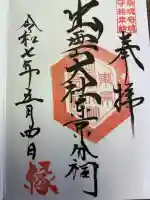 奉拝
出雲大社東京分祠
令和七年五月四日
縁